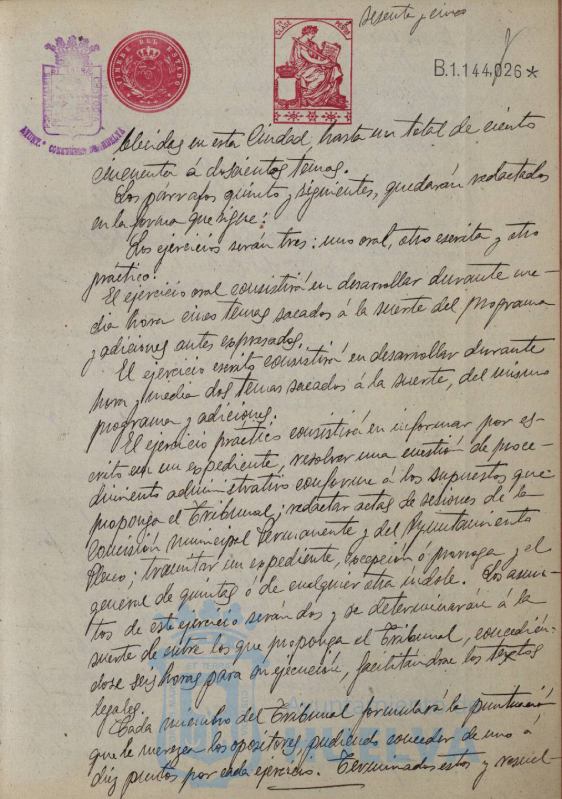 sesenta y cinco
B.1.144.026*
TIMBRE DEL ESTADO
CLASE
AYUNT. CONSTITUC. DE HUELVA
blecidas en esta Ciudad hasta un total de ciento
cincuenta á doscientos temas.
Los párrafos quinto y siguientes, quedarán redactados
en la forma que sigue:
Los ejercicios serán tres: uno oral, otro escrito y otro
práctico.
El ejercicio oral consistirá en desarrollar durante me-
dia hora cinco temas sacados á la suerte del programa
y adiciones antes expresados.
El ejercicio escrito consistirá en desarrollar durante
hora y media dos temas sacados á la suerte, del mismo
programa y adiciones.
El ejercicio práctico consistirá en informar por es-
crito en un expediente, resolver una cuestión de proce-
dimiento administrativo conforme á los supuestos que
proponga el Tribunal; redactar actas de sesiones de la
Comisión Municipal Permanente y del Ayuntamiento
Pleno; tramitar un expediente, excepción ó prórroga y el
general de quintas ó de cualquier otra índole. Los asun-
tos de este ejercicio serán dos y se determinarán á la
suerte de entre los que proponga el Tribunal, concedién-
dose seis horas para su ejecución, facilitándose los textos
legales.
Cada miembro del Tribunal formulará la puntuación
que le merezcan los opositores, pudiendo conceder de uno á
diez puntos por cada ejercicio. Terminados estos y resuel-
Ayuntamiento de
HUELVA